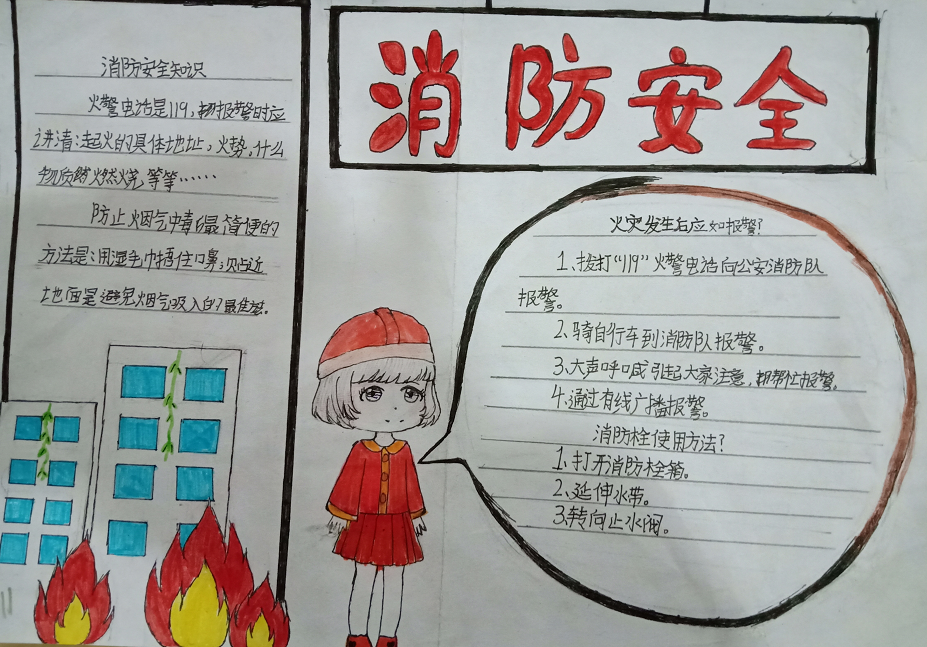 消防安全
消防安全知识
火警电话是119，报警时应
讲清：起火的具体地址，火势，什么
物质燃烧等等……
防止烟气中毒的最简便的
方法是：用湿毛巾捂住口鼻；贴近
地面是避免烟气吸入的最佳
火灾发生后应如报警？
1、拨打“119”火警电话向公安消防队
报警。
2、骑自行车到消防队报警。
3、大声呼喊引起大家注意，帮忙报警。
4、通过有线广播报警。
消防栓使用方法？
1、打开消防栓箱。
2、延伸水带。
3、转向止水阀。